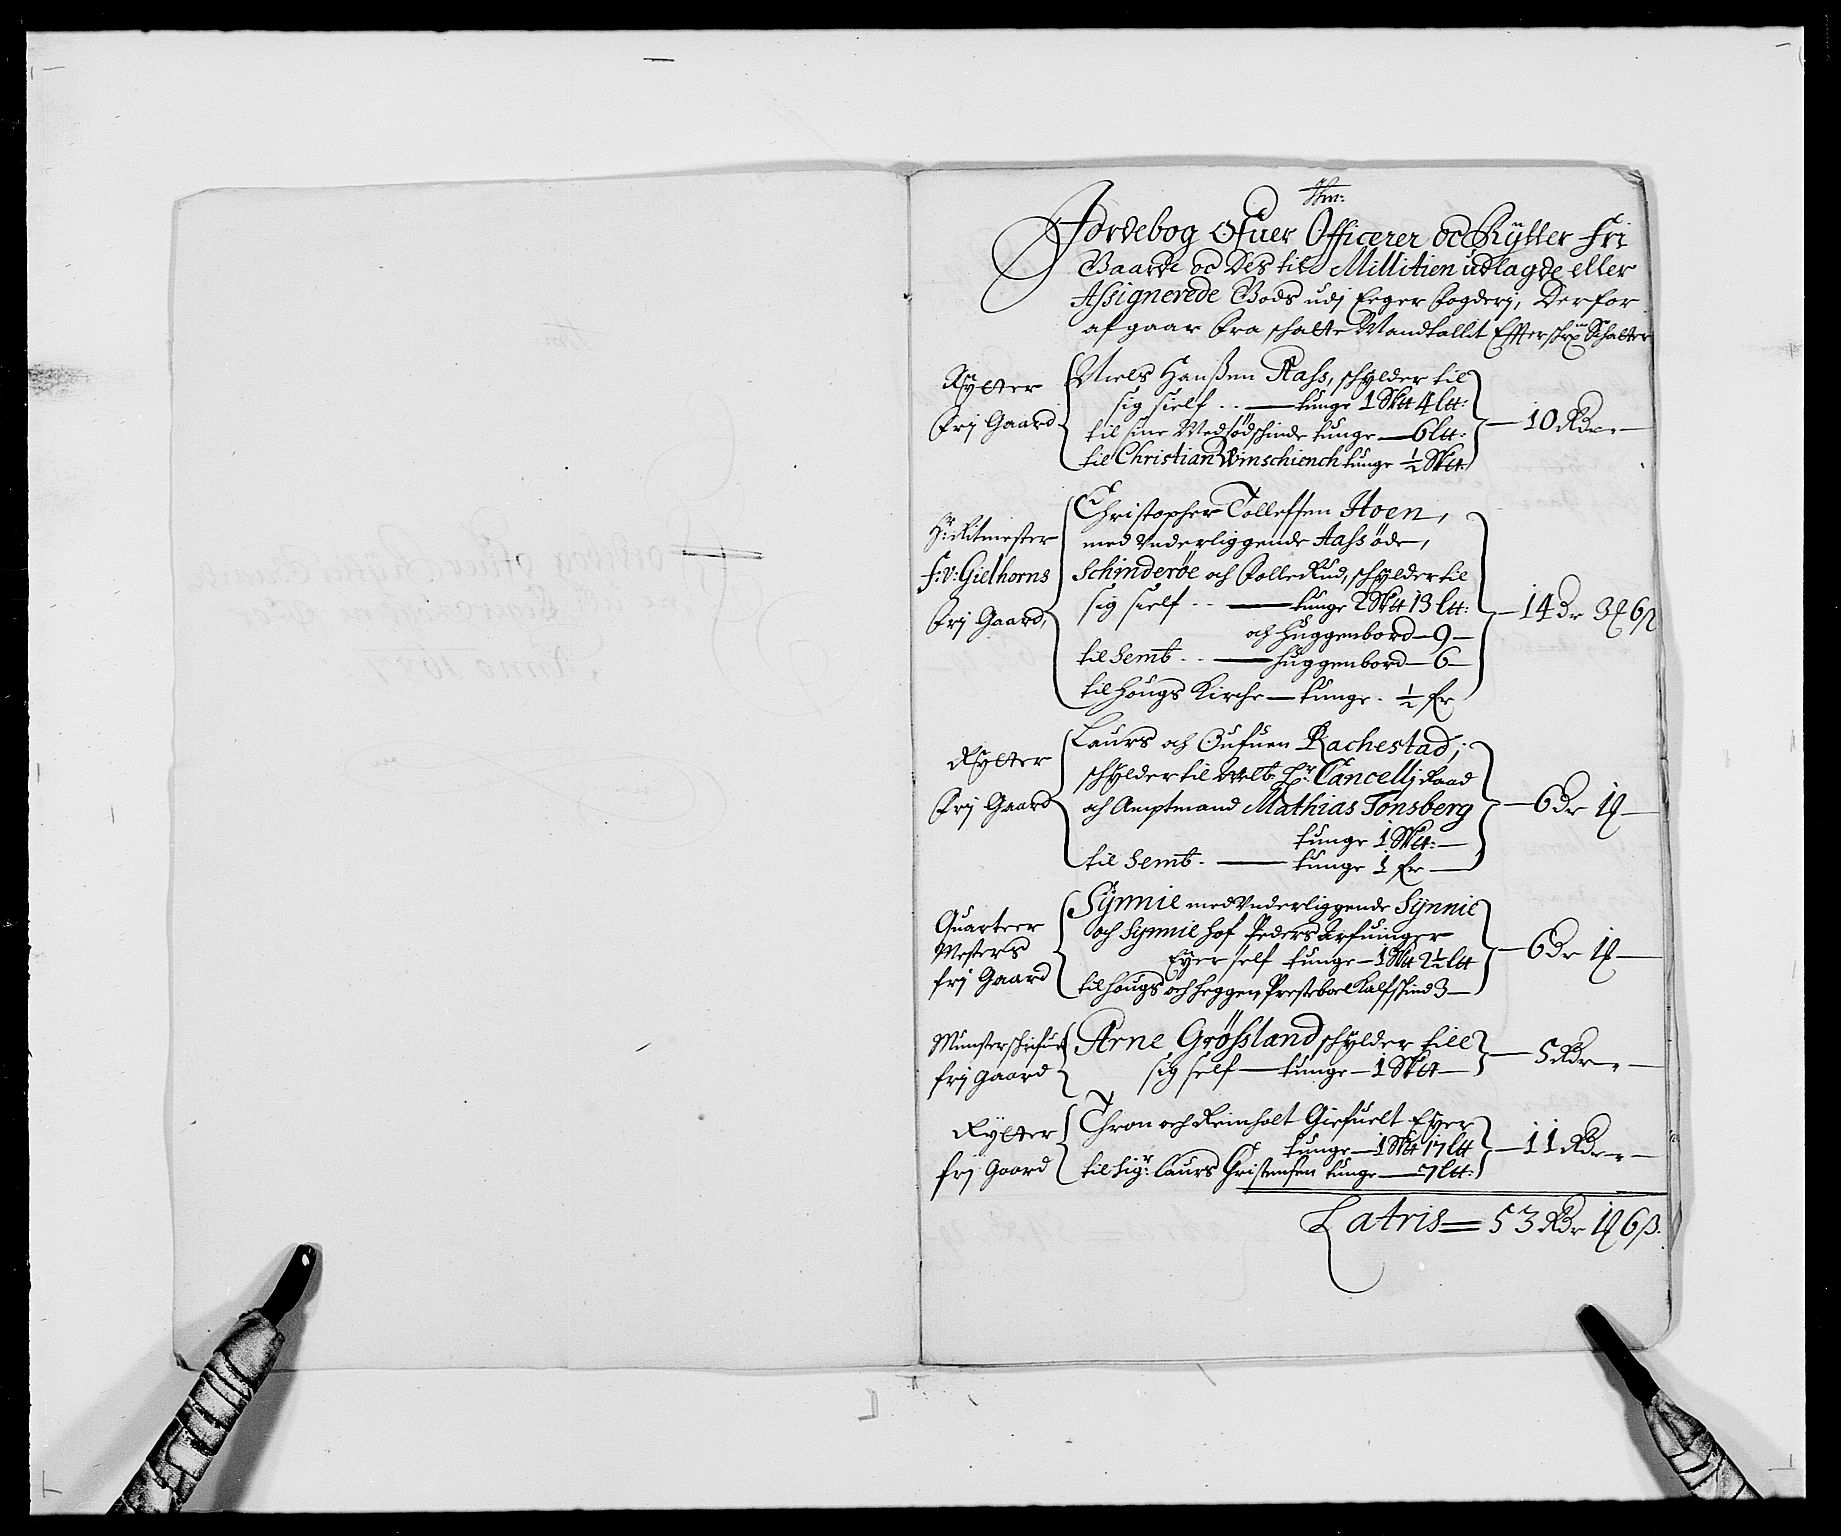 Jordebog Ofuer Officerer oc Rytter Fri
Gaarde oc Des til Millitien udlagde eller
Assignerede Gods udj Eeger Fogderj, Derfor
afgaar fra schatte Mandtallit Effterschr: Schatter
Rytter
Frj Gaard
Niels Hanßen Aass, schylder til
sig sielf .. — tunge 1 Sktt 4 ltt:
til sine Medsødschinde tunge — 6 ltt:
til Christian Winschiench tunge ½ Sktt.
— 10 Rdr —
Hr: Ritmester
F: V: Gielhorns
Frj Gaard,
Christopher Tolleffsen Hoen,
med Vnderliggende Aass øde,
Schinderøe och Follerud, schylder til
sig sielf .. — tunge 2 Sktt 13 ltt:
och huggenbord — 9 —
til Semb .. — huggenbord — 6 —
til Hougs Kirche — tunge . ½ Fr
— 14 Dr 3 ₰ 6 β
Rytter
Frj Gaard
Laurs och Gufuen Rachestad;
schylder til Welb: Hr: Cancellj Raad
och Amptmand Mathias Tonsberg
tunge 1 Sktt: —
til Semb. — tunge 1 Fr —
— 6 Dr 1 ₰ —
Quarteer
Mesters
frj Gaard
Synnie med Vnderliggende Synnie
och Synnie hof Peders Arfuinger
Eyer self tunge — 1 Sktt 2½ ltt
til Hougs och Heggen Presteboel Kalfschind 3 —
— 6 Dr 1 ₰ —
Munsterschrifuer
frj Gaard
Arne Grøsland schylder till
sig self — tunge — 1 Sktt —
— 5 Rdr —
Rytter
frj Gaard
Thron och Reinholt Giefuelt Eyer
tunge — 1 Skt 17 ltt
til Sigr: Laurs Christensen tunge — 7 ltt:
— 11 Rdr —
Latris = 53 Rdr 1 ₰ 6 β.